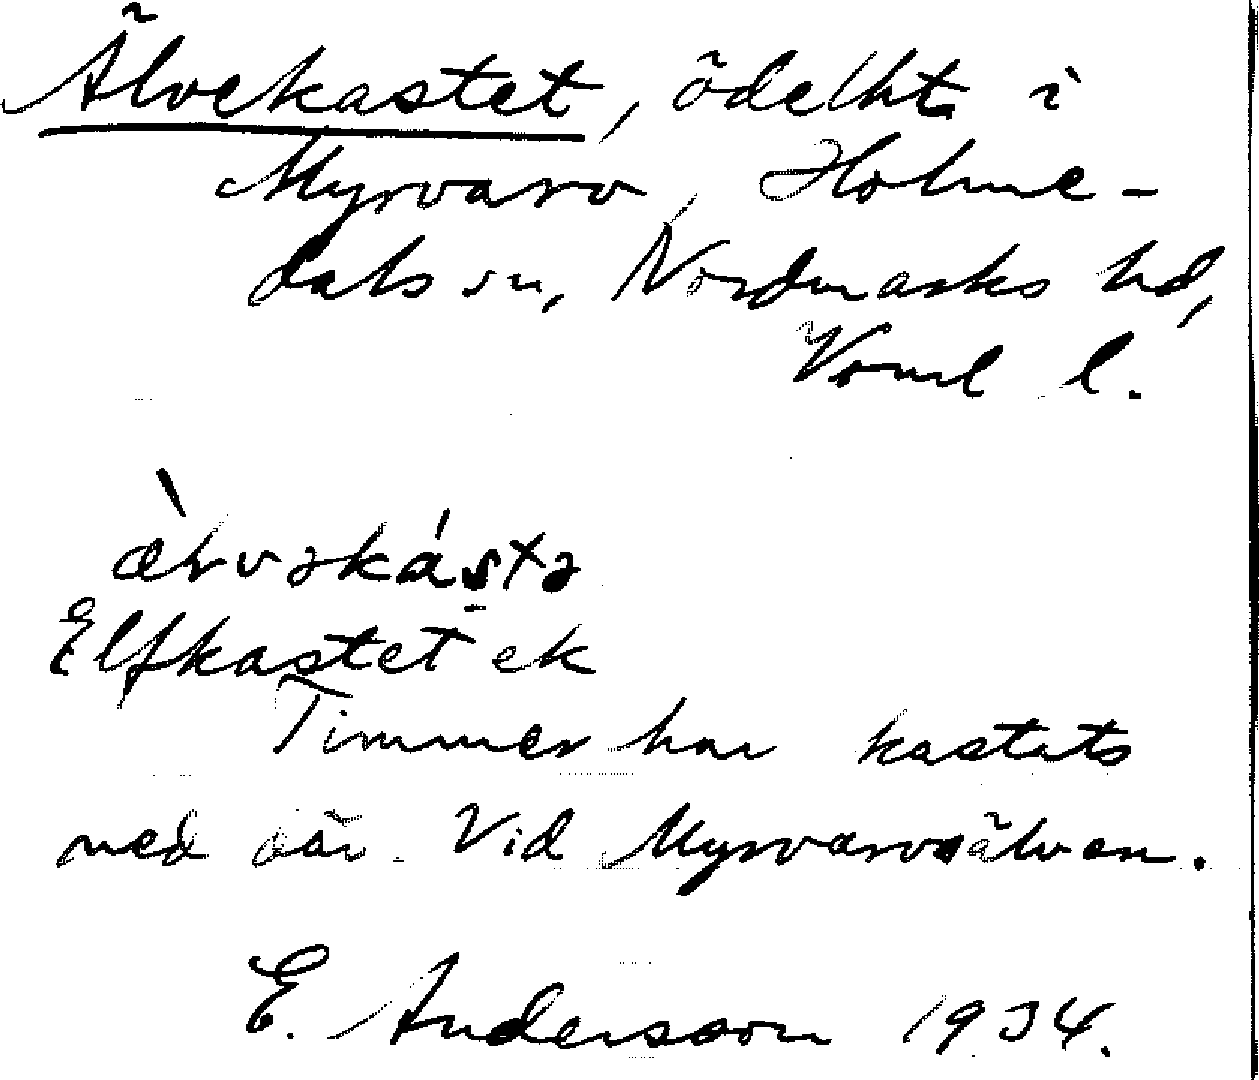 Älvekastet, ödelht i
Myrvarv, Holme-
dals sn, Nordmarks hd,
Värml l.
æ̀lvəkástə
Elfkastet ek
Timmer har kastats
ned där. Vid Myrvarvsälven.
E. Andersson 1934.